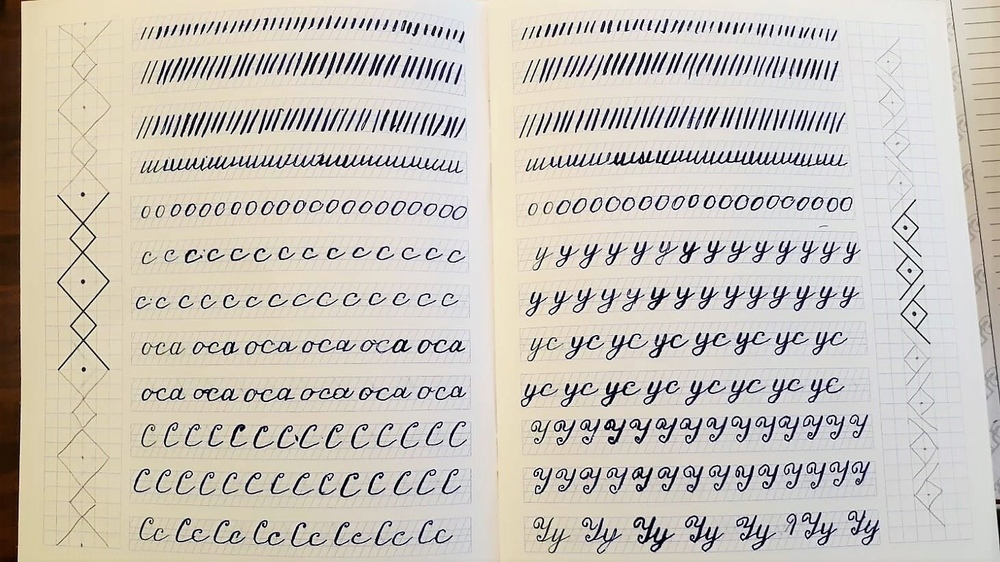 о о о о о о о о о о о о о о о о о о о о о
с с с с с с с с с с с с с с с
с с с с с с с с с с с с с с с
оса оса оса оса оса оса
оса оса оса оса оса оса
С С С С С С С С С С С С С С С
С С С С С С С С С С С С С С С
Сс Сс Сс Сс Сс Сс Сс Сс
о о о о о о о о о о о о о о о о о о о о
у у у у у у у у у у у у у у
у у у у у у у у у у у у у у
ус ус ус ус ус ус ус ус
ус ус ус ус ус ус ус ус
У У У У У У У У У У У У У У
У У У У У У У У У У У У У У
Уу Уу Уу Уу Уу Уу Уу